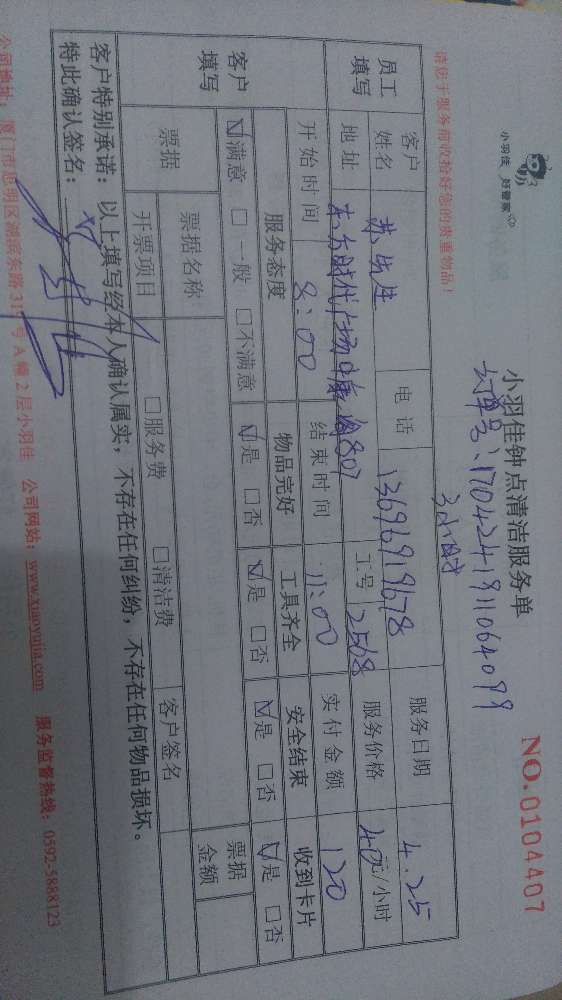 小羽佳 好管家
小羽佳钟点清洁服务单
NO.0104407
订单号:170424191106409
请您于服务前收拾好您的贵重物品!
3小时
员工填写
客户姓名 苏先生 电话 13696919678 服务日期 4.25
地址 东方时代广场 807 工号 2568 服务价格 40元/小时
开始时间 8:00 结束时间 11:00 实付金额 120
客户填写
服务态度 物品完好 工具齐全 安全结束 收到卡片
☑满意 □一般 □不满意 ☑是 □否 ☑是 □否 ☑是 □否 ☑是 □否
票据 票据名称 票据金额
开票项目 □服务费 □清洁费 客户签名
客户特别承诺:以上填写经本人确认属实,不存在任何纠纷,不存在任何物品损坏。
特此确认签名:
公司地址:厦门市思明区湖滨东路31 号A幢2层小羽佳 公司网站:www.xiaoyujia.com 服务监督热线:0592-5888123